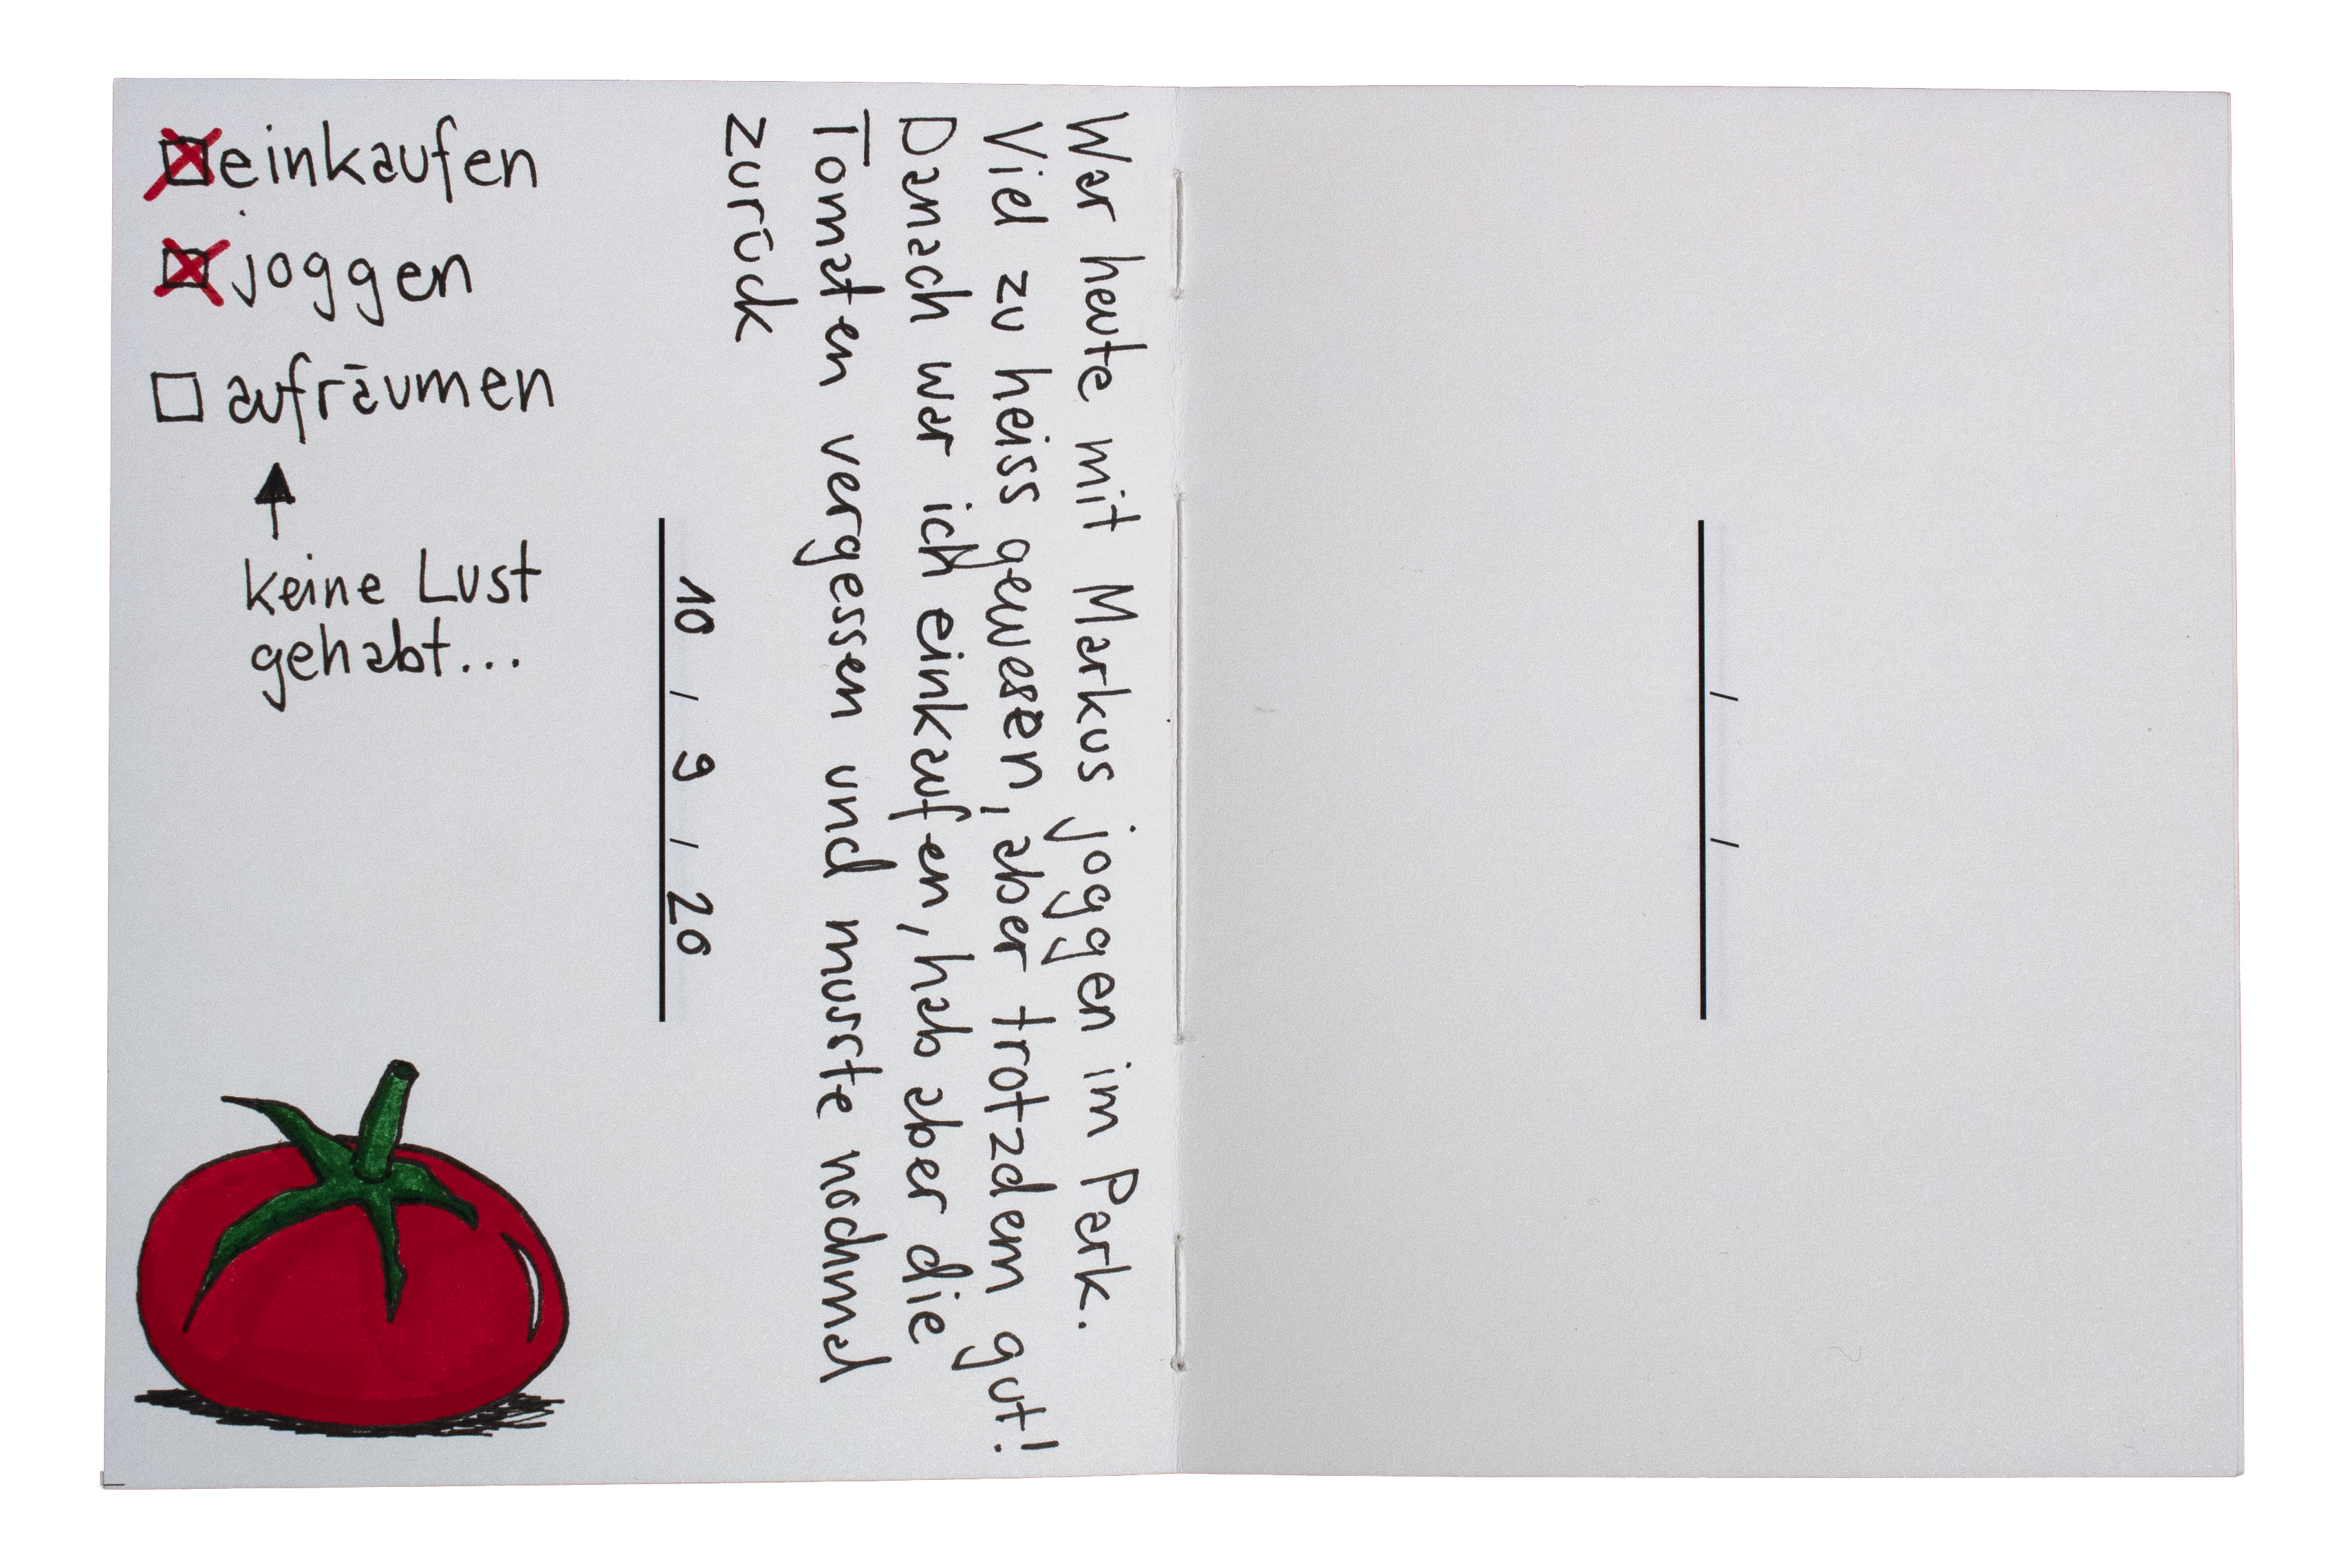 einkaufen
joggen
aufräumen
keine Lust
gehabt...
10 / 9 / 20
War heute mit Markus joggen im Park.
Viel zu heiss gewesen, aber trotzdem gut!
Danach war ich einkaufen, hab aber die
Tomaten vergessen und musste nochmal
zurück
/ /